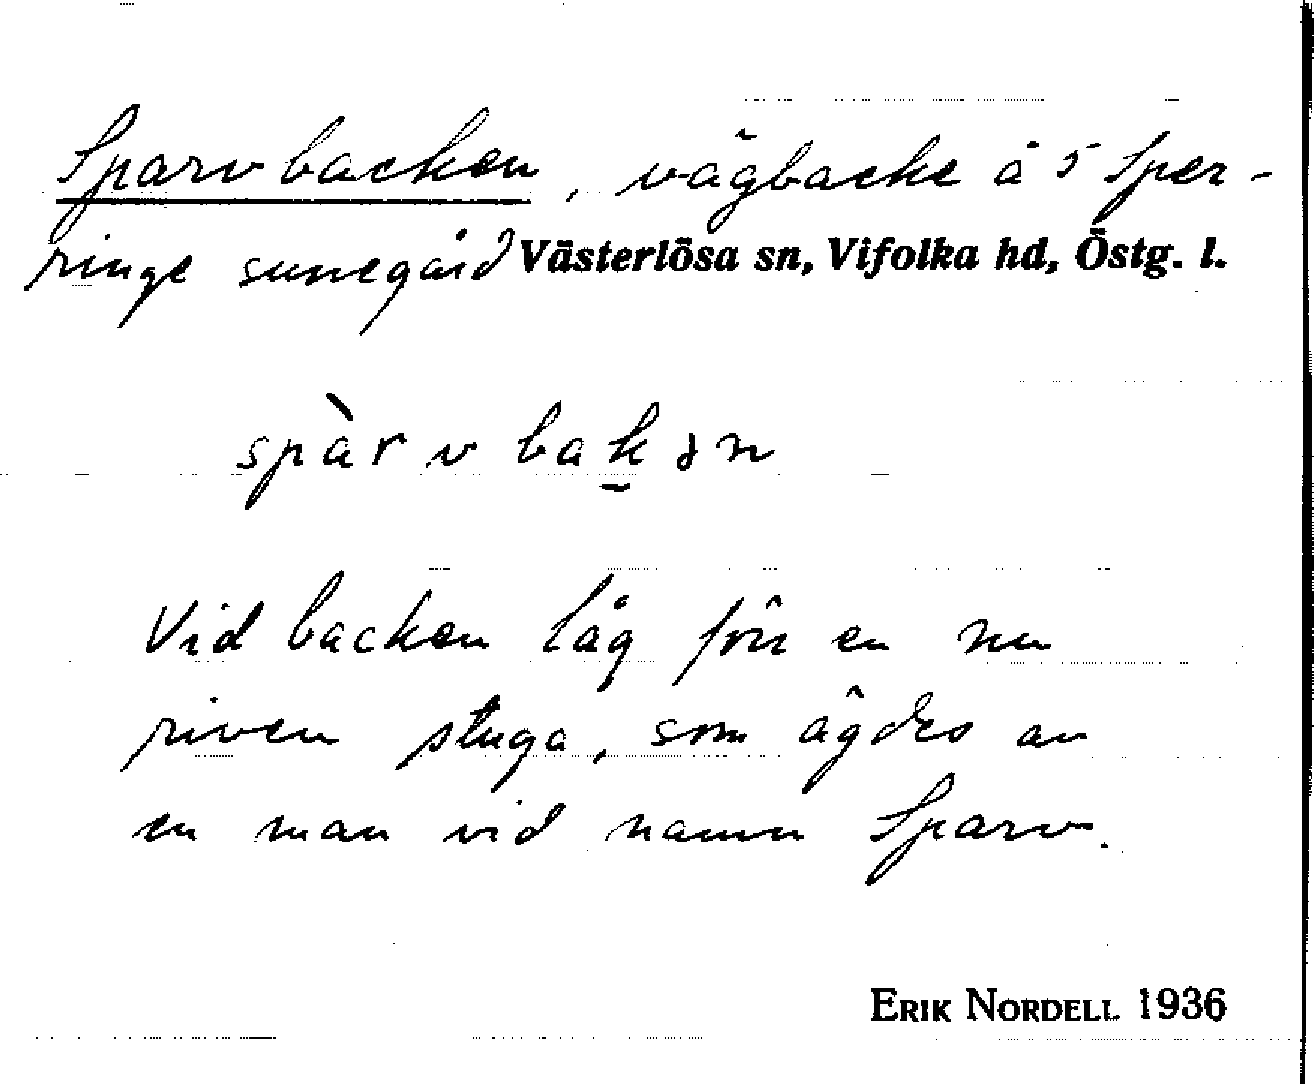 Sparvbacken, vägbacke å 5 Sper-
ringe sunegård Västerlösa sn, Vifolka hd, Östg. l.
spàrvbakən
Vid backen låg förr en nu
riven stuga, som ägdes av
en man vid namn Sparv.
ERIK NORDELL 1936